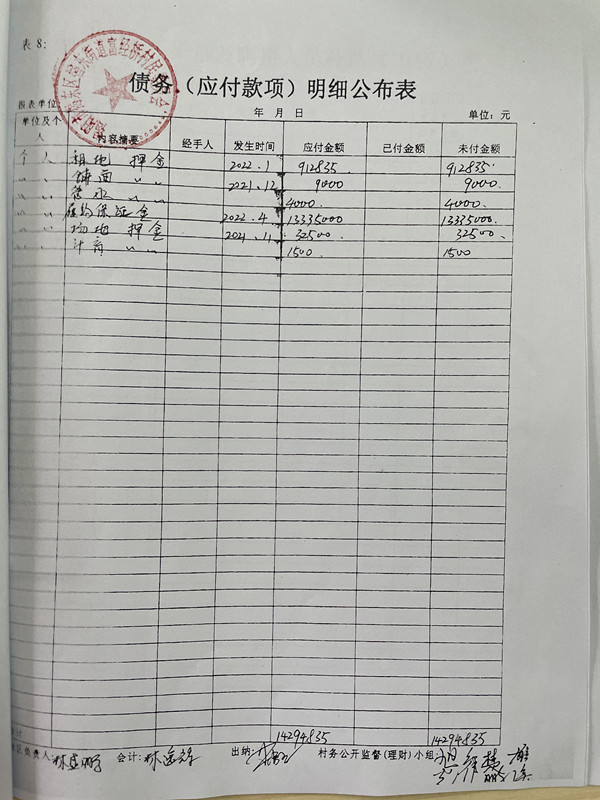 表 8:
债务（应付款项）明细公布表
报表单位
年 月 日 单位：元
单位及个人 内容摘要 经手人 发生时间 应付金额 已付金额 未付金额
个人 租地 押金 2022.1 912835 912835
〃 〃 铺面 〃 〃 2021.12 9000 9000
〃 〃 4000 4000
〃 〃 履约保证金 2022.4 13335000 13335000
〃 〃 场地 押金 2021.11 32500 32500
〃 〃 计育 〃 〃 1500 1500
计 14294835 14294835
负责人 会计： 出纳： 村务公开监督(理财)小组：